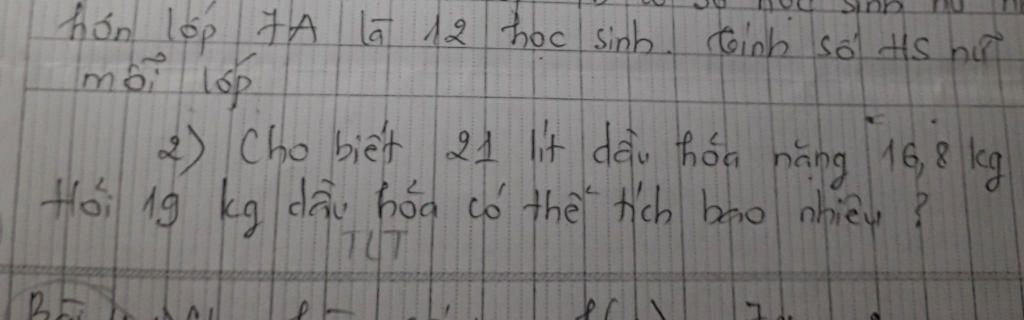 hơn lớp 7A là 12 học sinh. tính số HS nữ
mỗi lớp
2) Cho biết 21 lít dầu hỏa nặng 16,8 kg
Hỏi 19 kg dầu hỏa có thể tích bao nhiêu ?
TLT